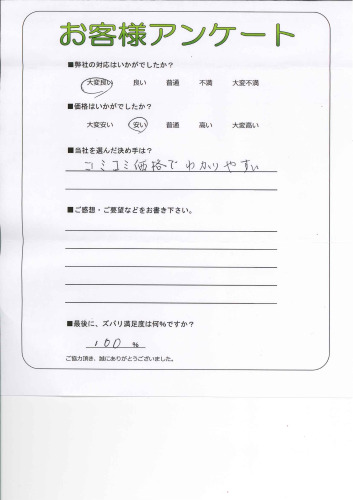 お客様アンケート
■弊社の対応はいかがでしたか?
大変良い 良い 普通 不満 大変不満
■価格はいかがでしたか?
大変安い 安い 普通 高い 大変高い
■当社を選んだ決め手は?
コミコミ価格でわかりやすい
■ご感想・ご要望などをお書き下さい。
■最後に、ズバリ満足度は何%ですか?
100 %
ご協力頂き、誠にありがとうございました。